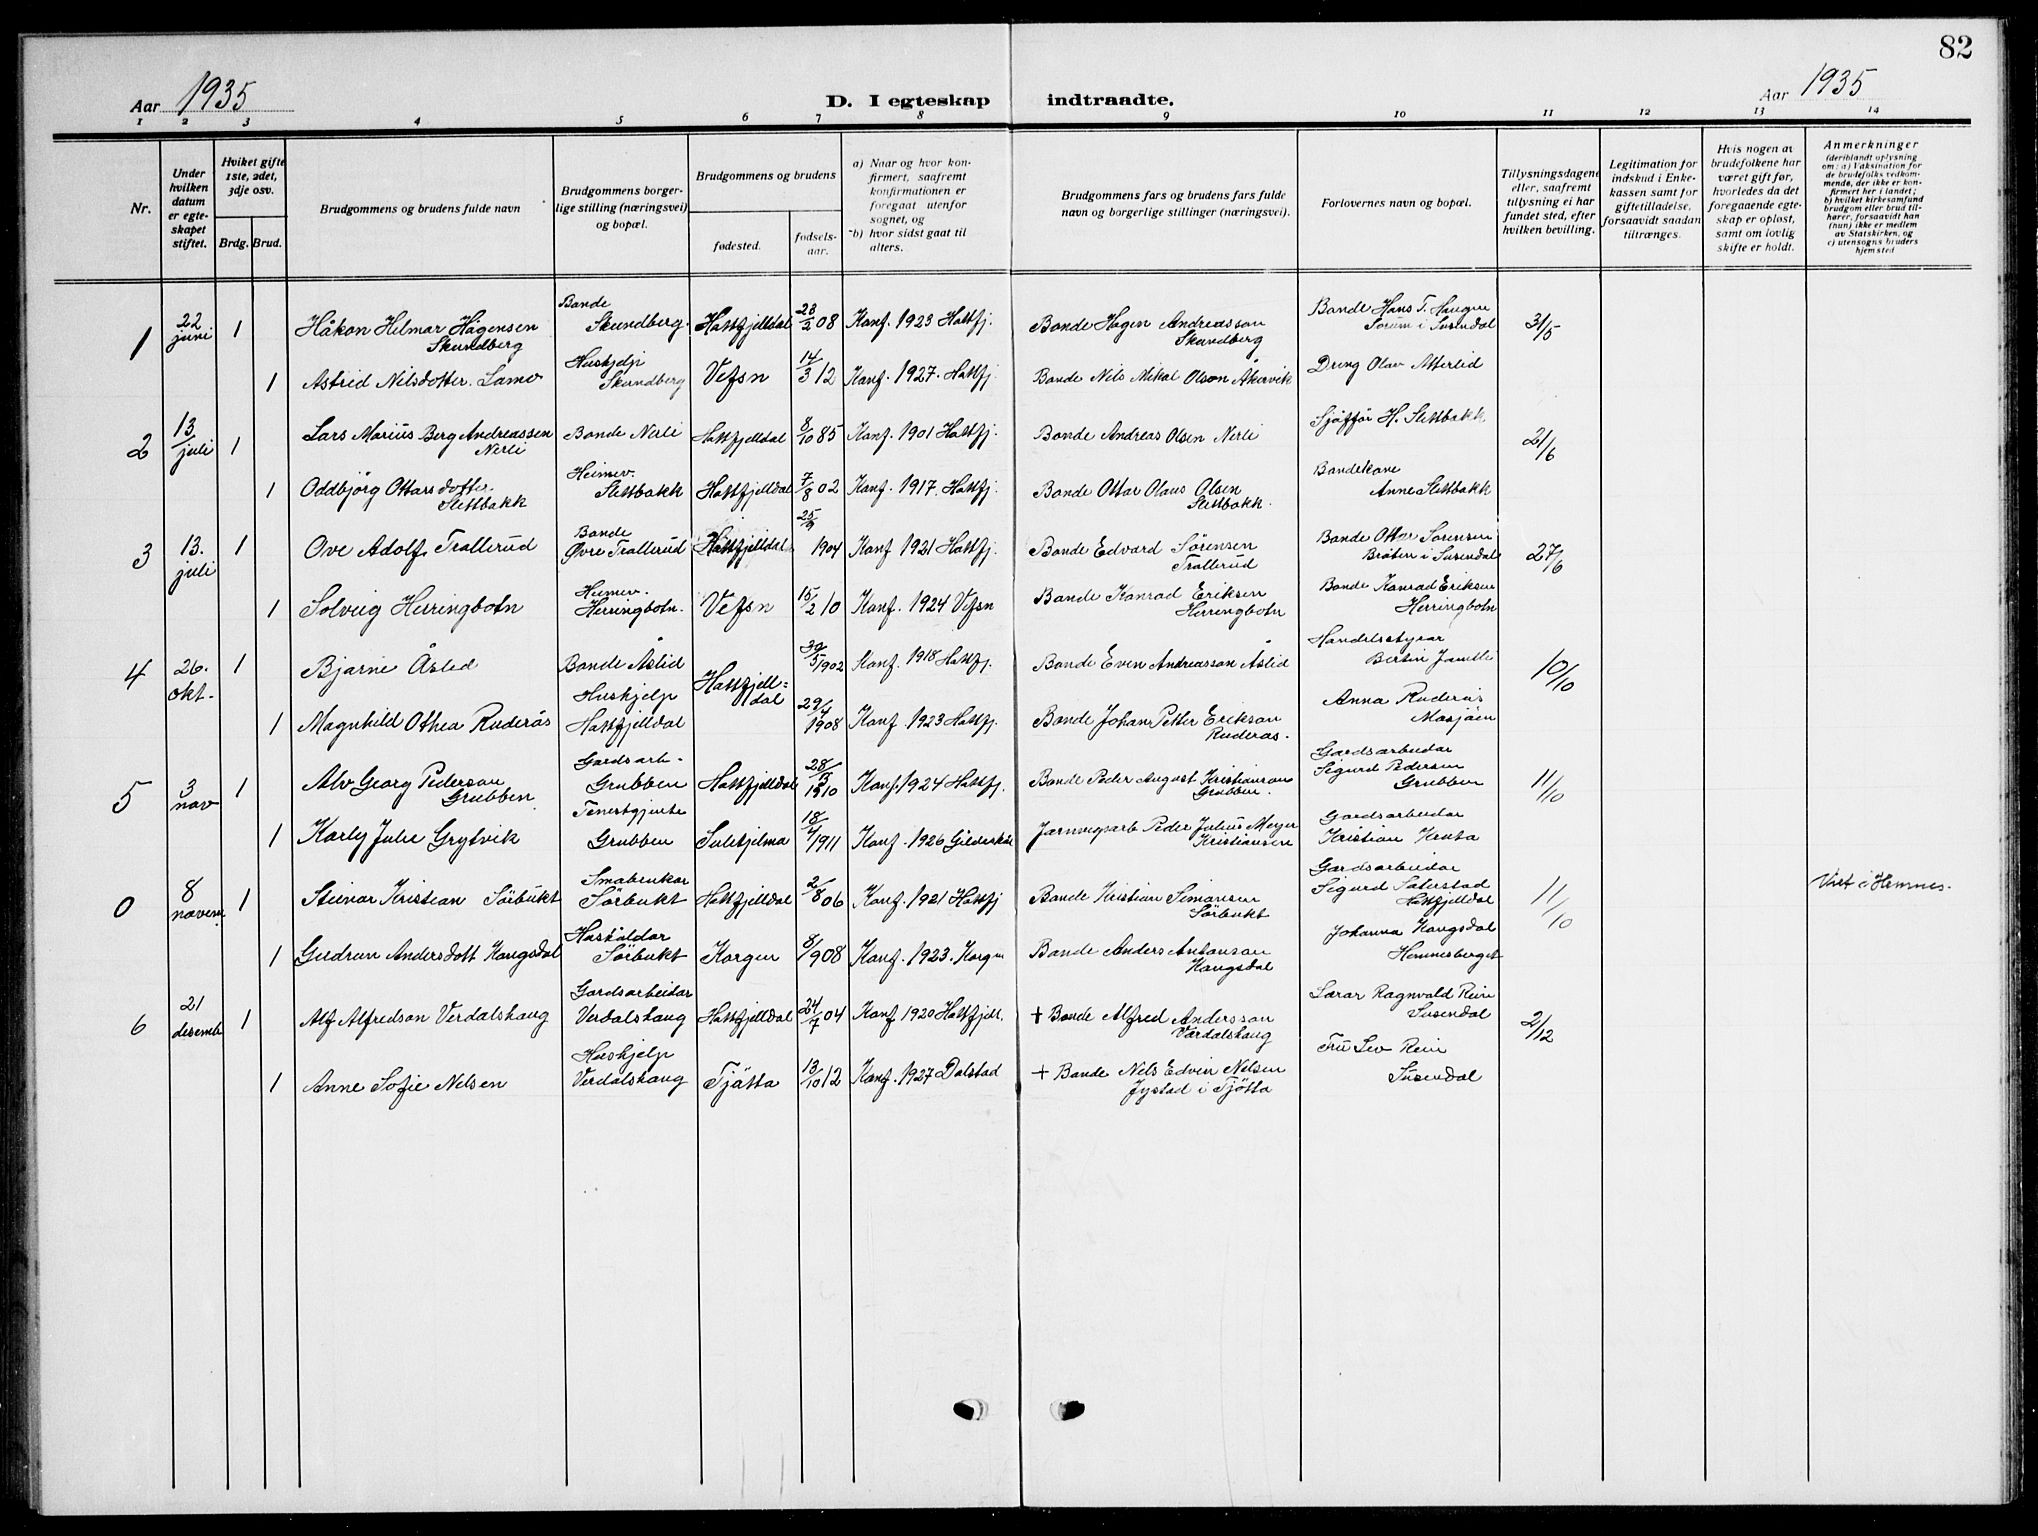 82
Aar 1935
D. I egteskap indtraadte.
Aar 1935
1 2 3 4 5 6 7 8 9 10 11 12 13 14
Nr.
Under hvilken datum er egteskapet stiftet.
Hvilket gifte 1ste, 2det, 3dje osv.
Brdg. Brud.
Brudgommens og brudens fulde navn
Brudgommens borgerlige stilling (næringsvei) og bopæl.
Brudgommens og brudens
fødested.
fødselsaar.
a) Naar og hvor konfirmert, saafremt konfirmationen er foregaat utenfor sognet, og
b) hvor sidst gaat til alters.
Brudgommens fars og brudens fars fulde navn og borgerlige stillinger (næringsvei).
Forlovernes navn og bopæl.
Tillysningsdagene eller, saafremt tillysning ei har fundet sted, efter hvilken bevilling.
Legitimation for indskud i Enkekassen samt for giftetilladelse, forsaavidt saadan tiltrænges.
Hvis nogen av brudefolkene har været gift før, hvorledes da det foregaaende egteskap er opløst, samt om lovlig skifte er holdt.
Anmerkninger
(deriblandt oplysning om: a) Vaksination for de brudefolks vedkommende, der ikke er konfirmert her i landet; b) hvilket kirkesamfund brudgom eller brud tilhører, forsaavidt han (hun) ikke er medlem av Statskirken, og c) utensogns bruders hjemsted
1 22 juni 1 Håkon Helmar Hågensen Skundberg Bonde Skundberg. Hattfjelldal 23/2 08 Konf. 1923 Hattfj. Bonde Hagen Andreasson Skundberg Bonde Hans T. Haugen Sorum i Susendal 31/5
1 Astrid Nilsdotter Lamo Hushjelp Skundberg Vefsn 14/3 12 Konf. 1927. Hattfj. Bonde Nils Mikal Olson Åkervik Dreng Olav Atterlid
2 13 juli 1 Lars Marius Berg Andreassen Nerli Bonde Nerli Hattfjelldal 8/10 85 Konf. 1901 Hattfj. Bonde Andreas Olsen Nerli Sjåffør H. Slettbakk 21/6
1 Oddbjørg Ottarsdotter Slettbakk Heimev. Slettbakk Hattfjelldal 7/8 02 Konf. 1917. Hattfj. Bonde Ottar Olaus Olsen Slettbakk. Bondekone Anne Slettbakk
3 13. juli 1 Ove Adolf Trallerud Bonde Øvre Trallerud Hattfjelldal 25/9 1904 Konf. 1921 Hattfj. Bonde Edvard Sørensen Trallerud Bonde Ottar Sørensen Bråten i Susendal 27/6
1 Solveig Herringbotn Heimev. Herringbotn. Vefsn 15/2 10 Konf. 1924 Vefsn Bonde Konrad Eriksen Herringbotn Bonde Konrad Eriksen Herringbotn
4 26. okt. 1 Bjarne Åslid Bonde Åslid Hattfjelldal 30/5 1902 Konf. 1918 Hattfj. Bonde Even Andreasson Åslid Handelsstyrar Bertin Jamtli 10/10
1 Magnhild Othea Ruderås Hushjelp Hattfjelldal 29/4 1908 Konf. 1923 Hattfj. Bonde Johan Petter Erikson Ruderås. Anna Ruderås Mosjøen
5 3 nov 1 Alv Georg Pederson Grubben Gardsarb. Grubben Hattfjelldal 28/3 1910 Konf. 1924 Hattfj. Bonde Peder August Kristianson Grubben. Gardsarbeidar Sigurd Pedersen Grubben 11/10
1 Karly Julie Grytvik Tenestgjente Grubben Sulitjelma 18/4 1911 Konf. 1926 Gildeskål Jarnvegsarb Peder Julius Meyer Kristiansen Gardsarbeidar Kristian Kruta
0 8 novem. 1 Steinar Kristian Sørbukt Småbrukar Sørbukt Hattfjelldal 2/8 06 Konf. 1921 Hattfj Bonde Kristian Simonsen Sørbukt Gardsarbeidar Sigurd Saterstad Hattfjelldal 11/10 Viet i Hemnes.
1 Gudrun Andersdott Kangsdal Hushaldar Sørbukt Korgen 8/9 08 Konf. 1923. Korgen Bonde Anders Antonson Kangsdal Johanna Kangsdal Hemnesberget
6 21 desemb 1 Alf Alfredson Verdalshaug Gardsarbeidar Verdalshaug Hattfjelldal 24/7 04 Konf 1920 Hattfjell. + Bonde Alfred Andersson Vardalshaug Lærar Ragnvald Rein Susendal 2/12
1 Anne Sofie Nelsen Hushjelp Verdalshaug Tjøtta 13/10 12 Konf. 1927 Dolstad + Bonde Nils Edvin Nelsen Jystad i Tjøtta Fru Rein Susendal